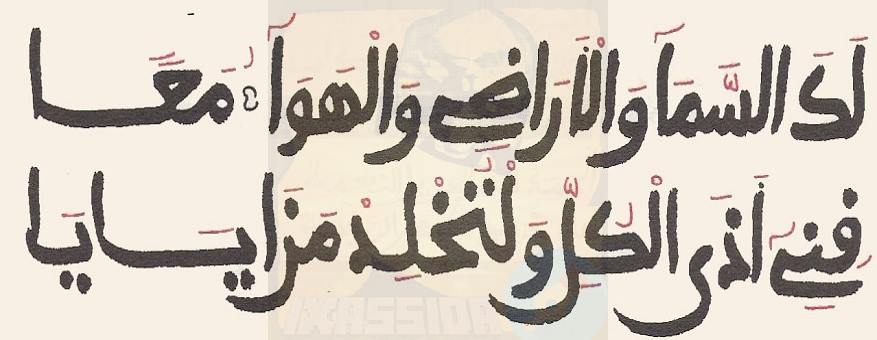 لَكَ السَّمَآ وَالْأَرَاضِي وَالْهَوَآءُ مَعًا
فِنِيٓ أَذَى الْكُلِّ وَلْتُخْلِدْ مَزَايَايَا
IXASSIDA